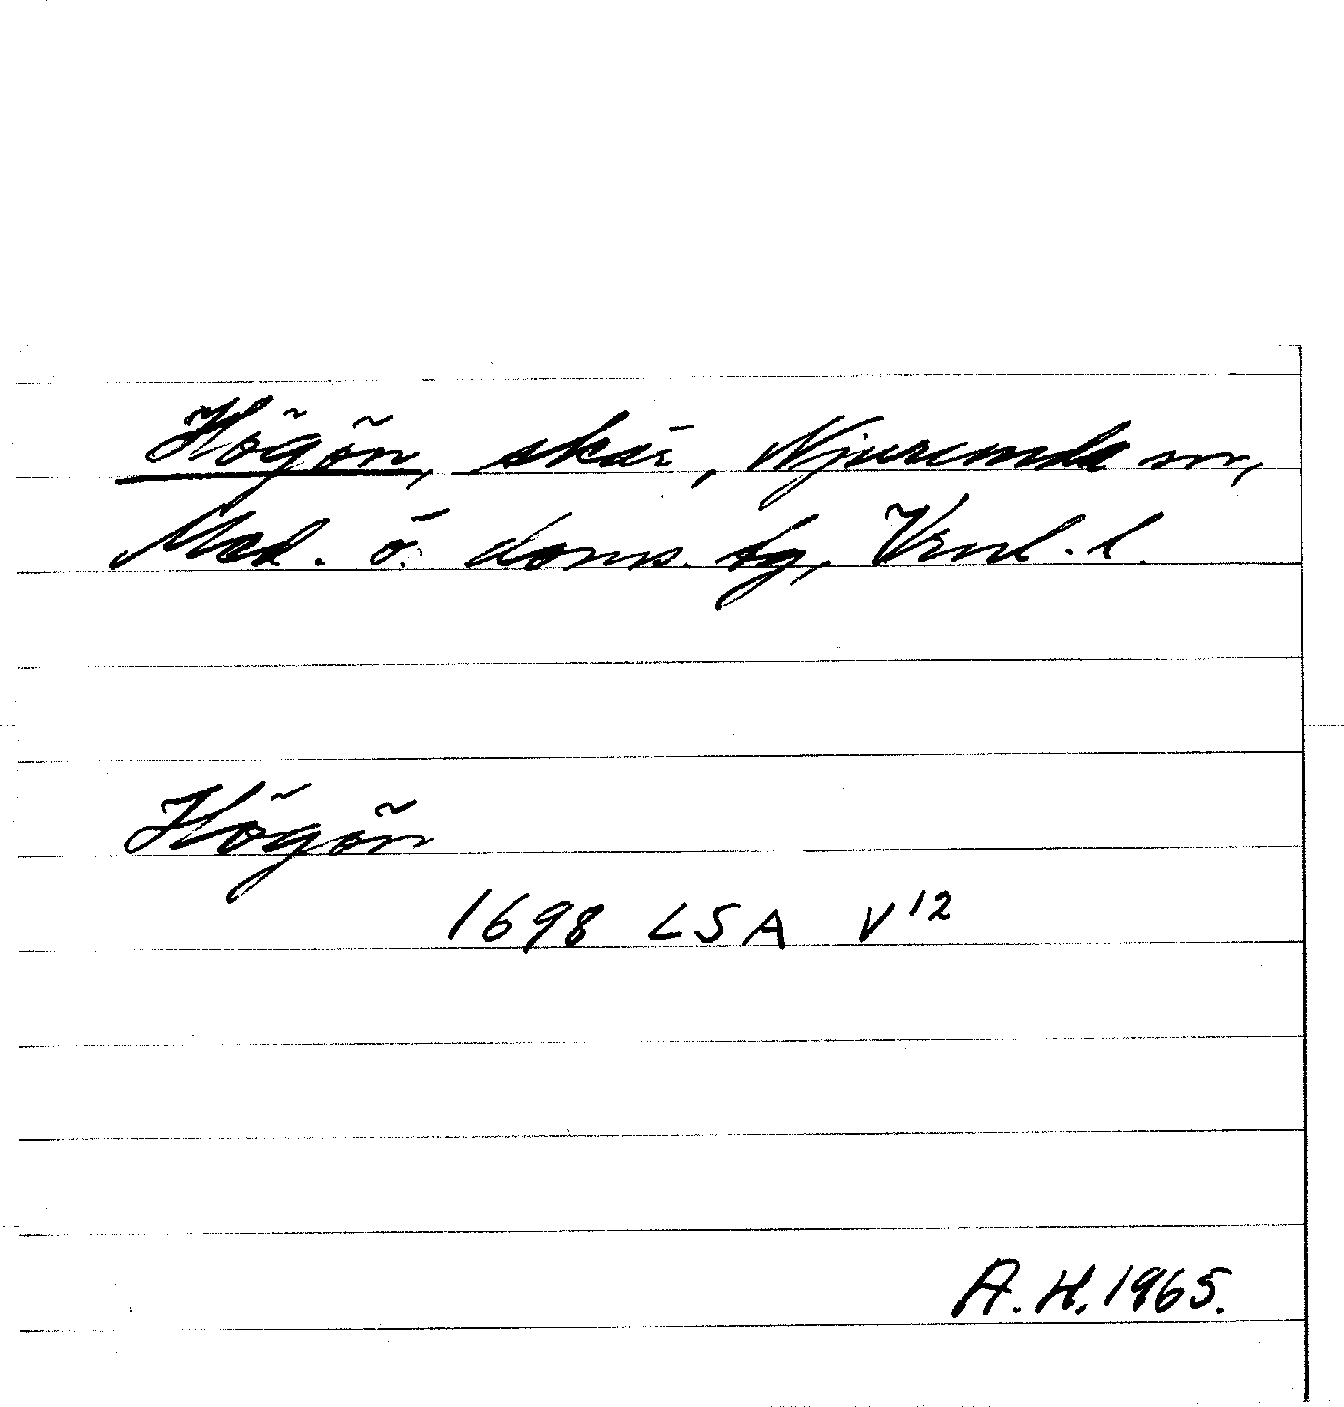 Högön, skär, Njurunda sn,
Med. ö. doms. tg, Vrnl. l.
Högön
1698 LSA V12
A.H. 1965.